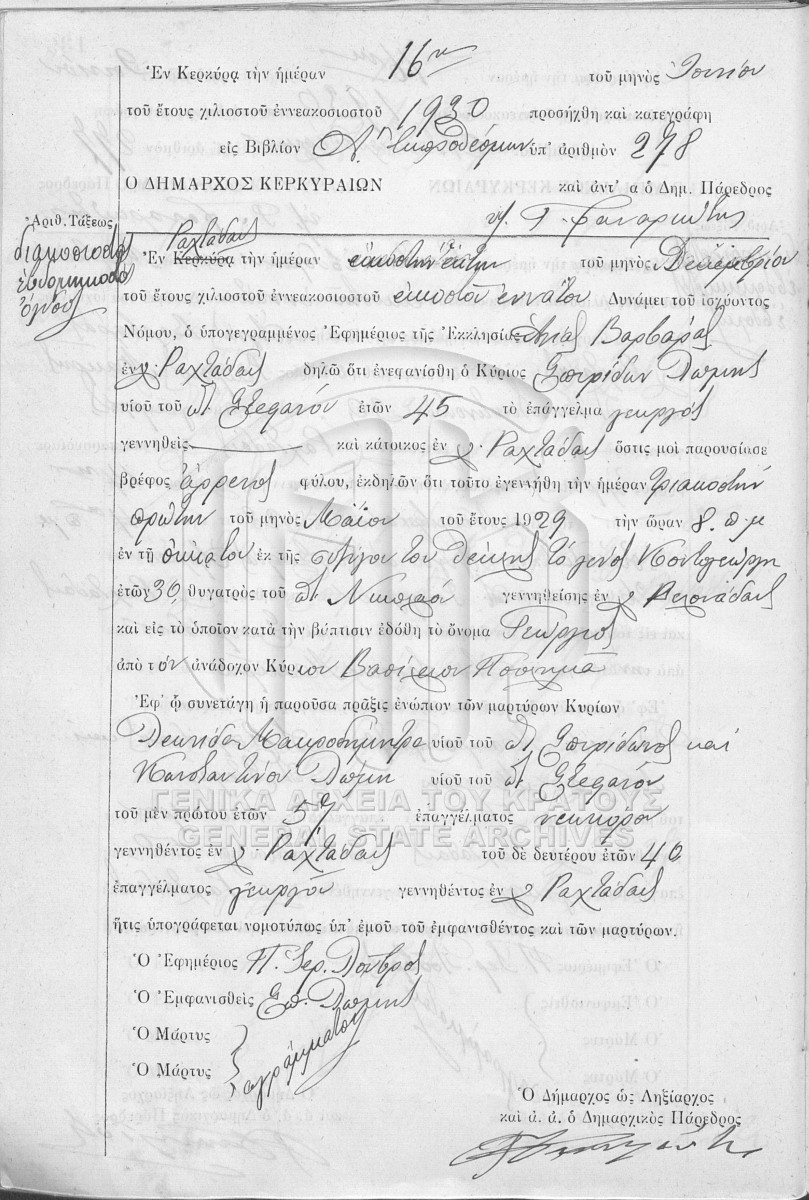 Ἐν Κερκύρᾳ τὴν ἡμέραν 16ην τοῦ μηνὸς Ἰουνίου
τοῦ ἔτους χιλιοστοῦ ἐννεακοσιοστοῦ 1930 προσήχθη καὶ κατεγράφη
εἰς Βιβλίον Α' Ἐκπροθέσμων ὑπ' ἀριθμὸν 278
Ὁ ΔΗΜΑΡΧΟΣ ΚΕΡΚΥΡΑΙΩΝ καὶ ἀντ' α ὁ Δημ. Πάρεδρος
Γ. Φαναριώτης
Ἀριθ. Τάξεως
διακοσιοστὸς
ἑβδομηκοστὸς
ὄγδοος
Ραχτάδες
Ἐν Κερκύρᾳ τὴν ἡμέραν εἰκοστὴν ἕκτην τοῦ μηνὸς Δεκεμβρίου
τοῦ ἔτους χιλιοστοῦ ἐννεακοσιοστοῦ εἰκοστοῦ ἐννάτου Δυνάμει τοῦ ἰσχύοντος
Νόμου, ὁ ὑπογεγραμμένος Ἐφημέριος τῆς Ἐκκλησίας Ἁγίας Βαρβάρας
ἐν χ. Ραχτάδες δηλῶ ὅτι ἐνεφανίσθη ὁ Κύριος Σπυρίδων
υἱοῦ τοῦ π. Στεφάνου ἐτῶν 45 τὸ ἐπάγγελμα γεωργὸς
γεννηθεὶς καὶ κάτοικος ἐν χ. Ραχτάδες ὅστις μοὶ παρουσίασε
βρέφος ἄρρενος φύλου, ἐκδηλῶν ὅτι τοῦτο ἐγεννήθη τὴν ἡμέραν τριακοστὴν
πρώτην τοῦ μηνὸς Μαΐου τοῦ ἔτους 1929 τὴν ὥραν 8 π.μ
ἐν τῇ οἰκίᾳ του ἐκ τῆς συζύγου του τὸ γένος Κοντογεώργη
ἐτῶν 30, θυγατρὸς τοῦ π. Νικολάου γεννηθείσης ἐν χ Βελονάδες
καὶ εἰς τὸ ὁποῖον κατὰ τὴν βάπτισιν ἐδόθη τὸ ὄνομα Γεώργιος
ἀπὸ τὸν ἀνάδοχον Κύριον Βασίλειον
Ἐφ' ᾧ συνετάγη ἡ παροῦσα πρᾶξις ἐνώπιον τῶν μαρτύρων Κυρίων
Λεωνίδα Μακροδημήτρα υἱοῦ τοῦ π. Σπυρίδωνος καὶ
Κωνσταντίνου υἱοῦ τοῦ π. Στεφάνου
ΓΕΝΙΚΑ ΑΡΧΕΙΑ ΤΟΥ ΚΡΑΤΟΥΣ
τοῦ μὲν πρώτου ἐτῶν 57 ἐπαγγέλματος
GENERAL STATE ARCHIVES
γεννηθέντος ἐν χ Ραχτάδες τοῦ δὲ δευτέρου ἐτῶν 40
ἐπαγγέλματος γεωργοῦ γεννηθέντος ἐν χ Ραχτάδες
ἥτις ὑπογράφεται νομοτύπως ὑπ' ἐμοῦ τοῦ ἐμφανισθέντος καὶ τῶν μαρτύρων.
Ὁ Ἐφημέριος Π. Ἱερ. Λουβρος
Ὁ Ἐμφανισθεὶς Σπ.
Ὁ Μάρτυς
Ὁ Μάρτυς ἀγράμματοι
Ὁ Δήμαρχος ὡς Ληξίαρχος
καὶ ἀ. ἀ. ὁ Δημαρχικὸς Πάρεδρος